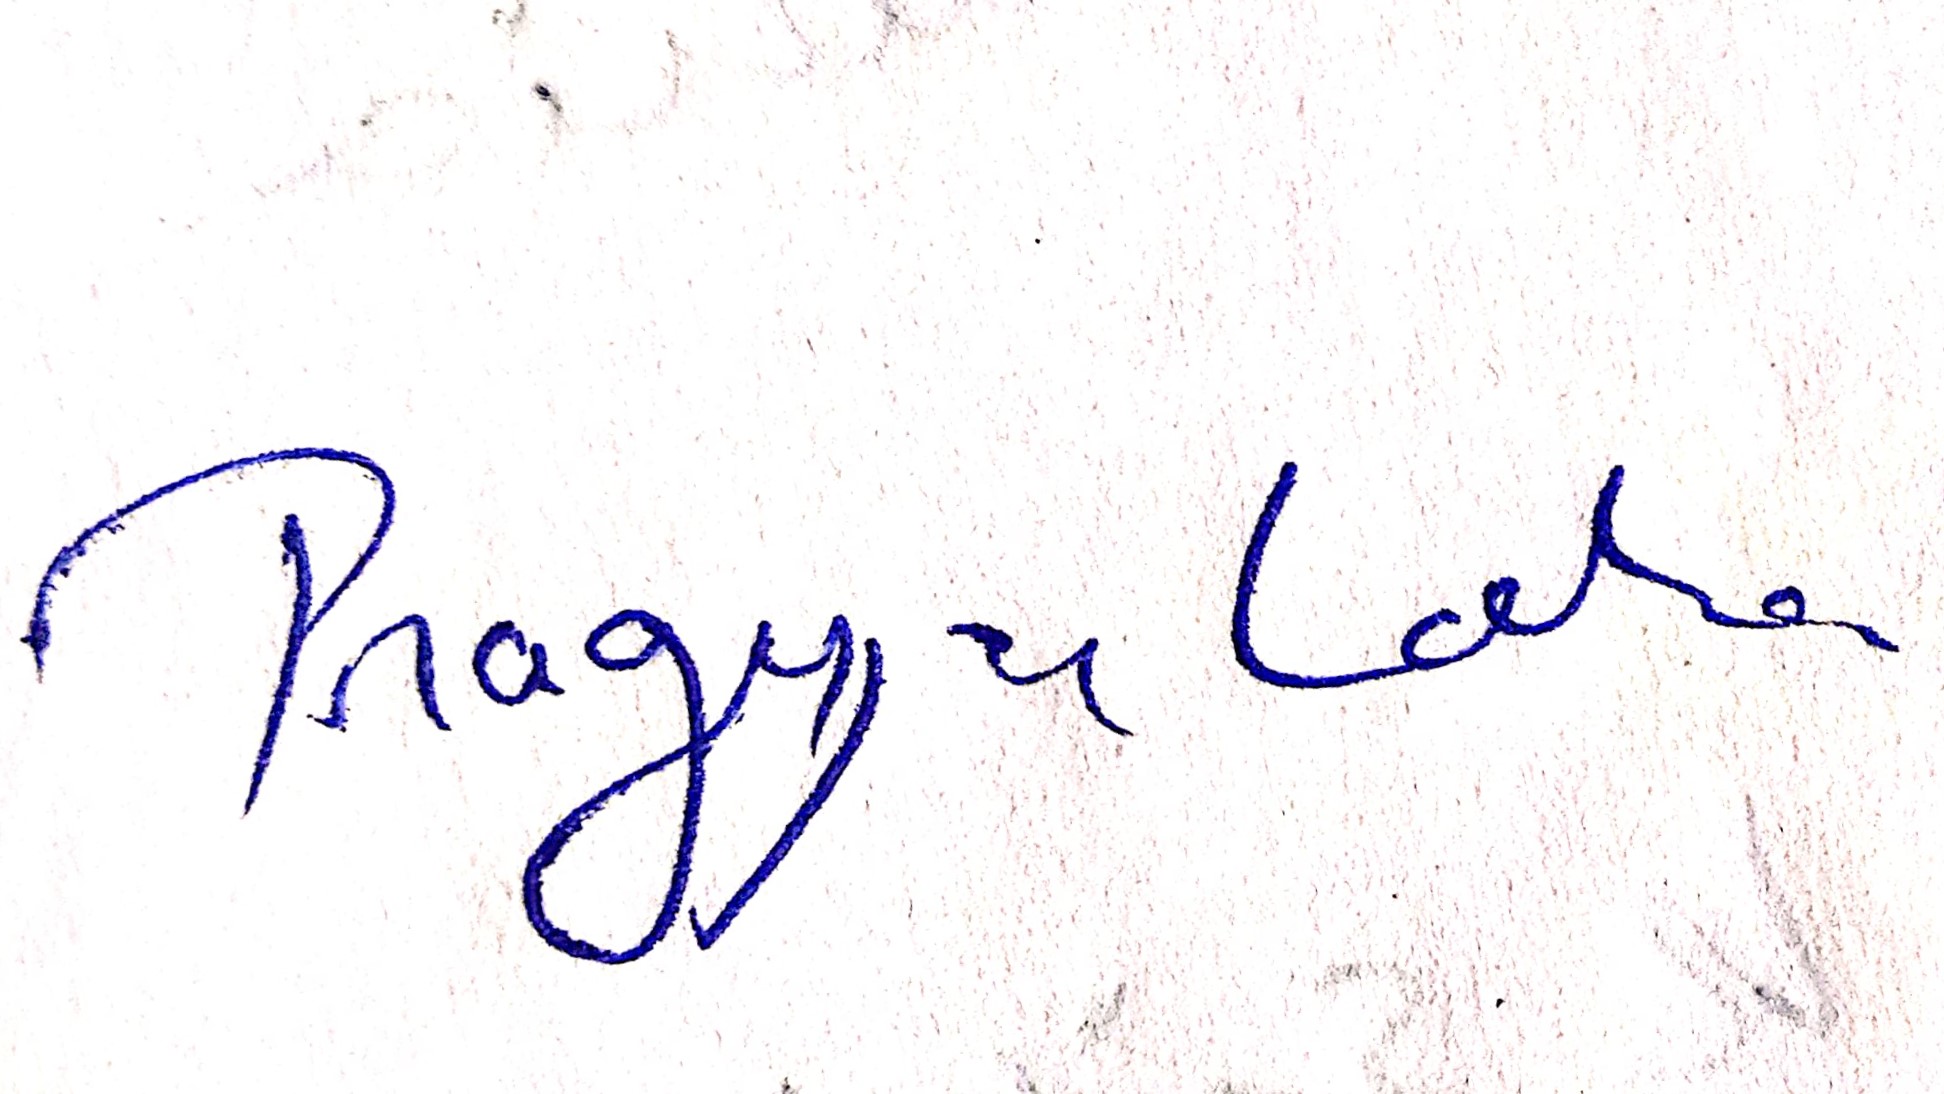 Pragya Laha